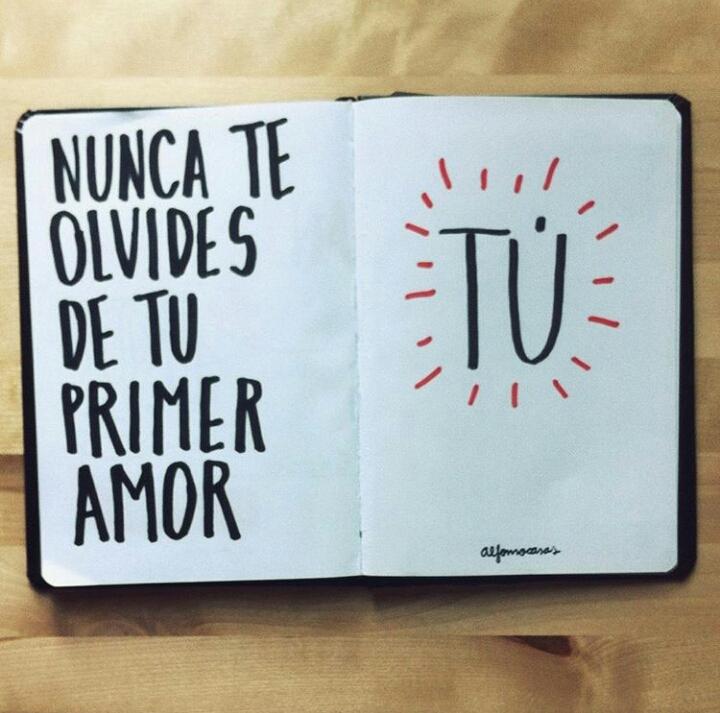 NUNCA TE
OLVIDES
DE TU
PRIMER
AMOR
TÚ
alfonsocasas